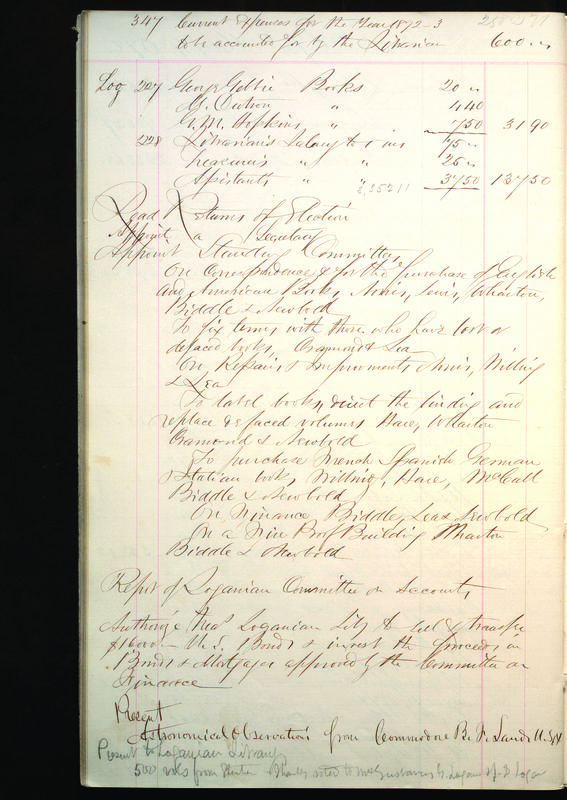 347 Current Expenses for the Year 1872-3
to be accounted for by the Librarian 600 "
Log 227 George Gebbie Books 20 "
G. Dutson " 4 40
G. M. Hopkins " 7 50 31 90
228 Librarian's Salary to 1 ins 75 "
Treasurer's " " 25 "
Assistants " " 37 50 137 50
Read Returns of Election
Appoint a Secretary
Appoint Standing Committees
On Correspondence & for the purchase of English
and American Books, Norris, Lewis, Wharton,
Biddle & Newbold
To fix terms with those who have lost or
defaced books, Cramond & Lea
On Repairs & Improvements Norris, Willing
& Lea
To label books, direct the binding and
replace defaced volumes Hare, Wharton
Cramond & Newbold
To purchase French Spanish German
& Italian books, Willing, Hare, McCall
Biddle & Newbold
On Finance, Biddle, Lea & Newbold
On a Fire Proof Building Wharton
Biddle & Newbold
Report of Loganian Committee on Accounts
Authorize Treas Loganian Liby to sell & transfer
$16000 — U.S. Bonds & invest the proceeds in
Bonds & Mortgages approved by the Committee on
Finance
Present
Astronomical Observations from Commodore B. F. Sands U.S.N
Present to Loganian Library
500 vols from thanks voted to Mr Gustavus G. Logan & J. D. Logan